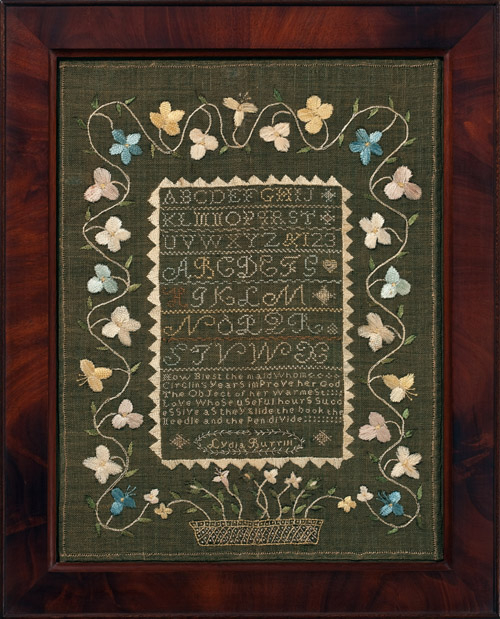 ABCDEFGHIJ
KLMNOPQRST
UVWXYZ&123
ABCDEFG
HJKLM
NOPQR
STVWX
How Blest the maid whom
Circling years improve her God
The Object of her Warmest
Love Whose useful hours Suc
cessive as they Glide the book the
Needle and the Pen divide
Lydia Burrill